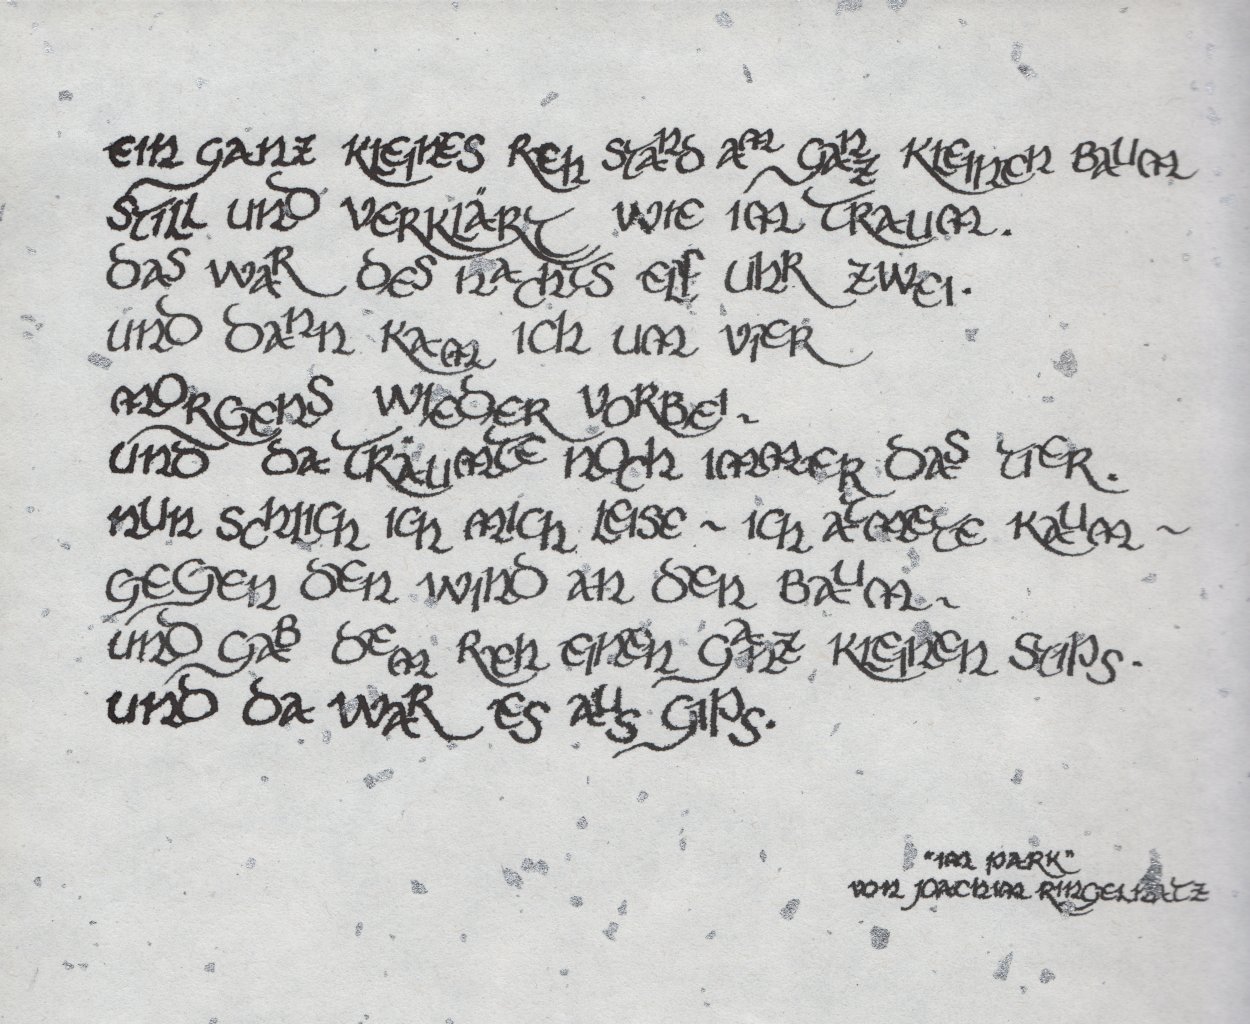 Ein ganz kleines Reh stand am ganz kleinen Baum
still und verklärt wie im Traum.
Das war des Nachts elf Uhr zwei.
Und dann kam ich um vier
morgens wieder vorbei.
Und da träumte noch immer das Tier.
Nun schlich ich mich leise ~ ich atmete kaum ~
gegen den Wind an den Baum~
und gab dem Reh einen ganz kleinen Stips.
Und da war es aus Gips.
"Im Park"
von Joachim Ringelnatz